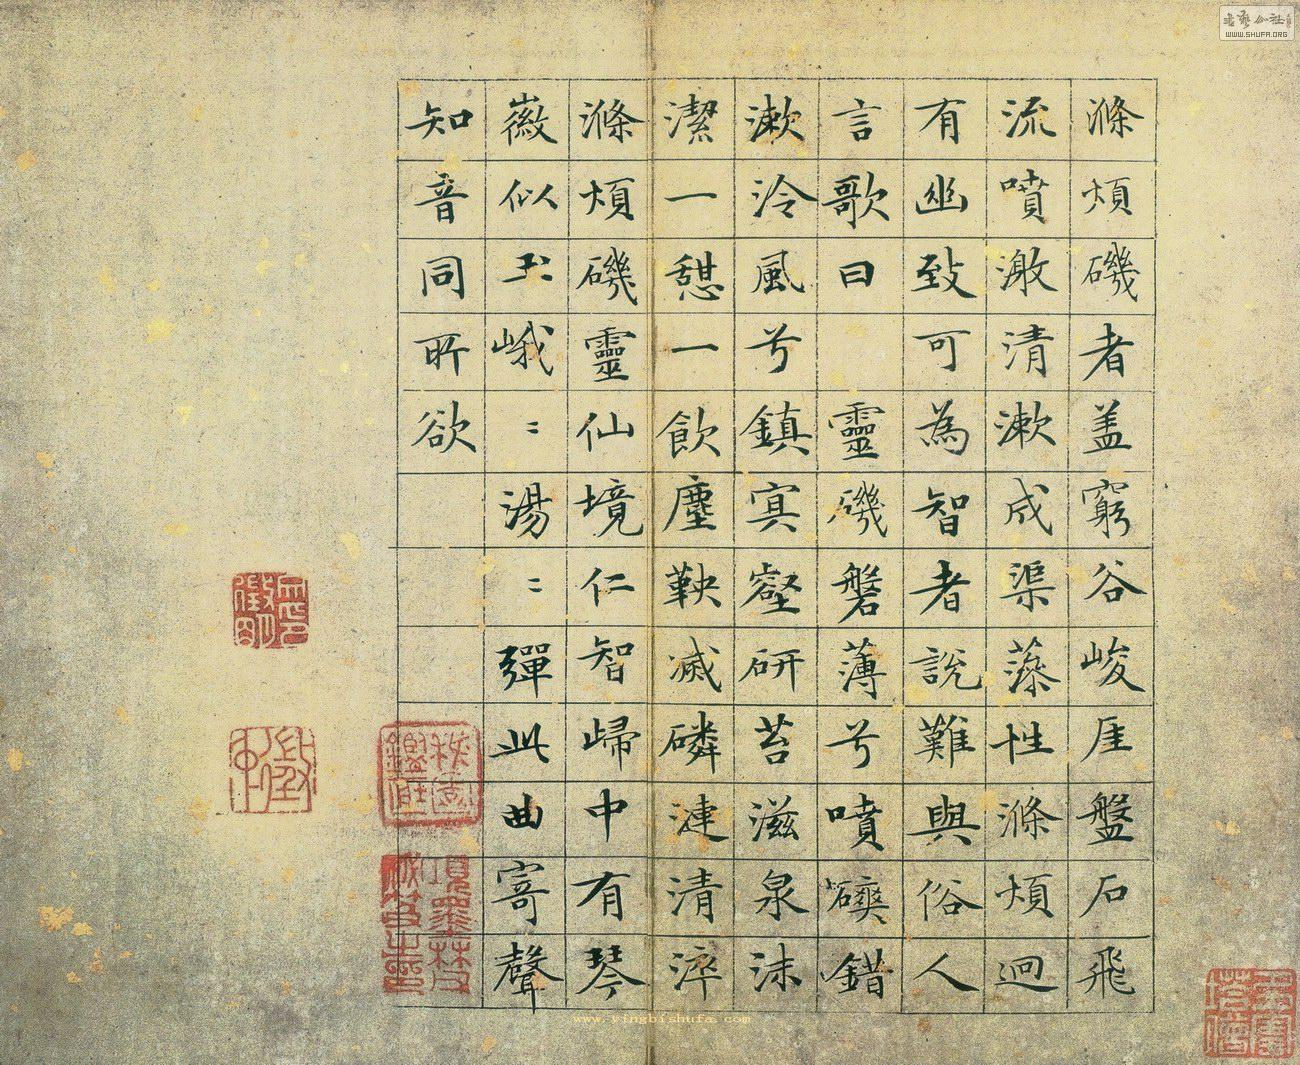 滌煩磯者盖窮谷峻厓盤石飛
流噴激清漱成渠藻性滌煩迥
有幽致可為智者說難與俗人
言歌曰　靈磯磐薄兮噴錯
漱泠風兮鎮冥壑研苔滋泉沫
潔一憩一飲塵鞅滅磷漣清淬
滌煩磯靈仙境仁智歸中有琴
徽似玉峨〻湯〻彈此曲寄聲
知音同所欲
項墨林父秘笈之印
WWW.SHUFA.ORG
www.yingbishufa.com